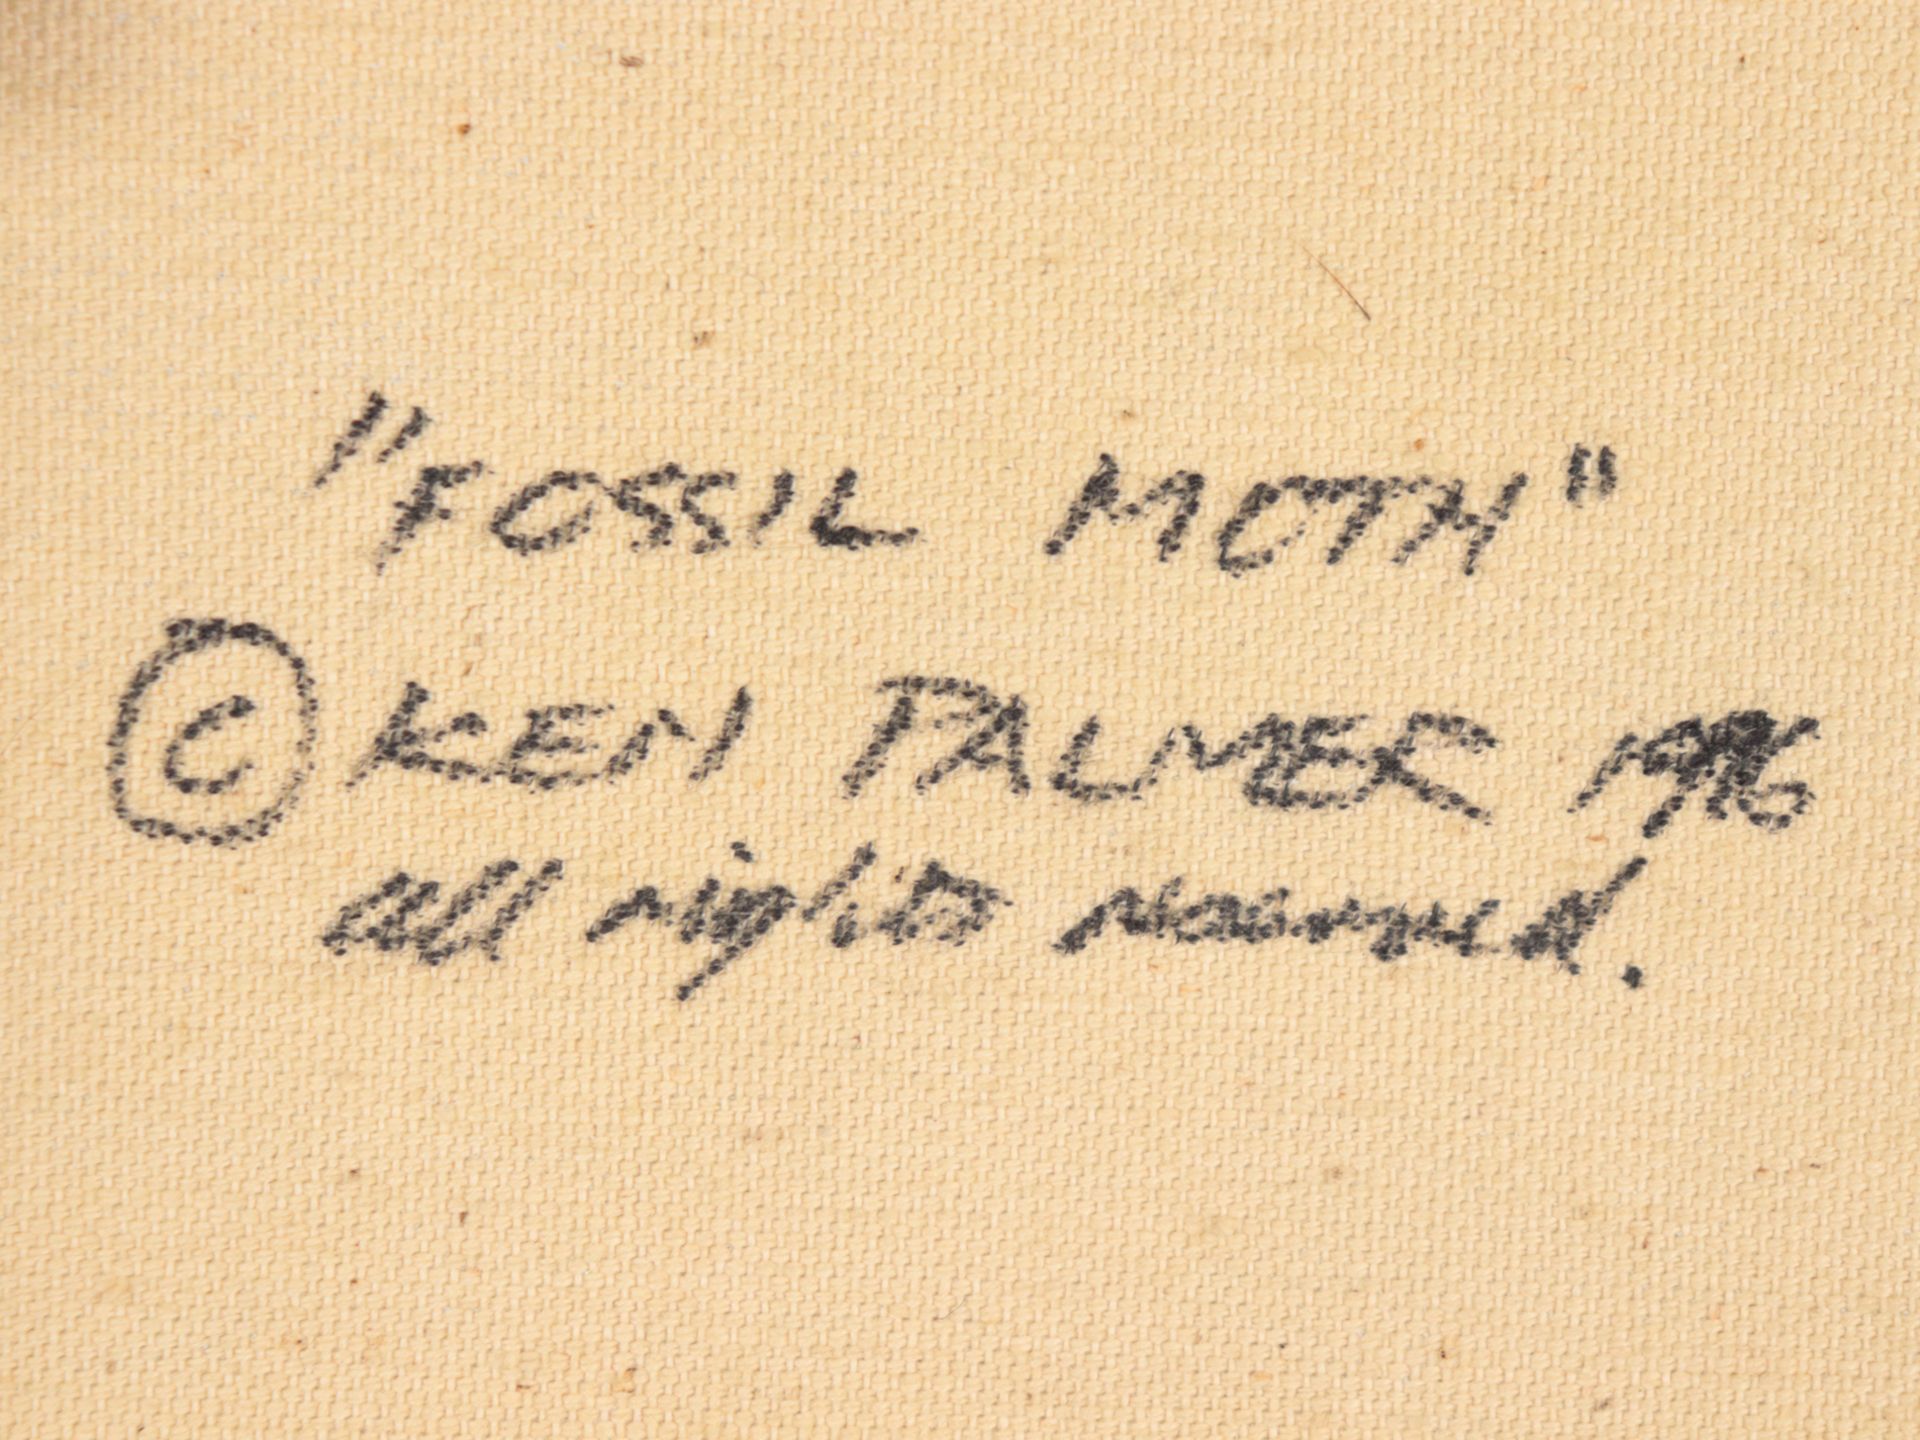 "FOSSIL MOTH"
© KEN PALMER
all rights reserved.